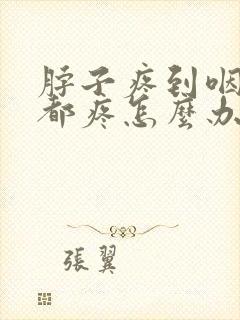 脖子疼到咽
都疼怎麼办
張翼